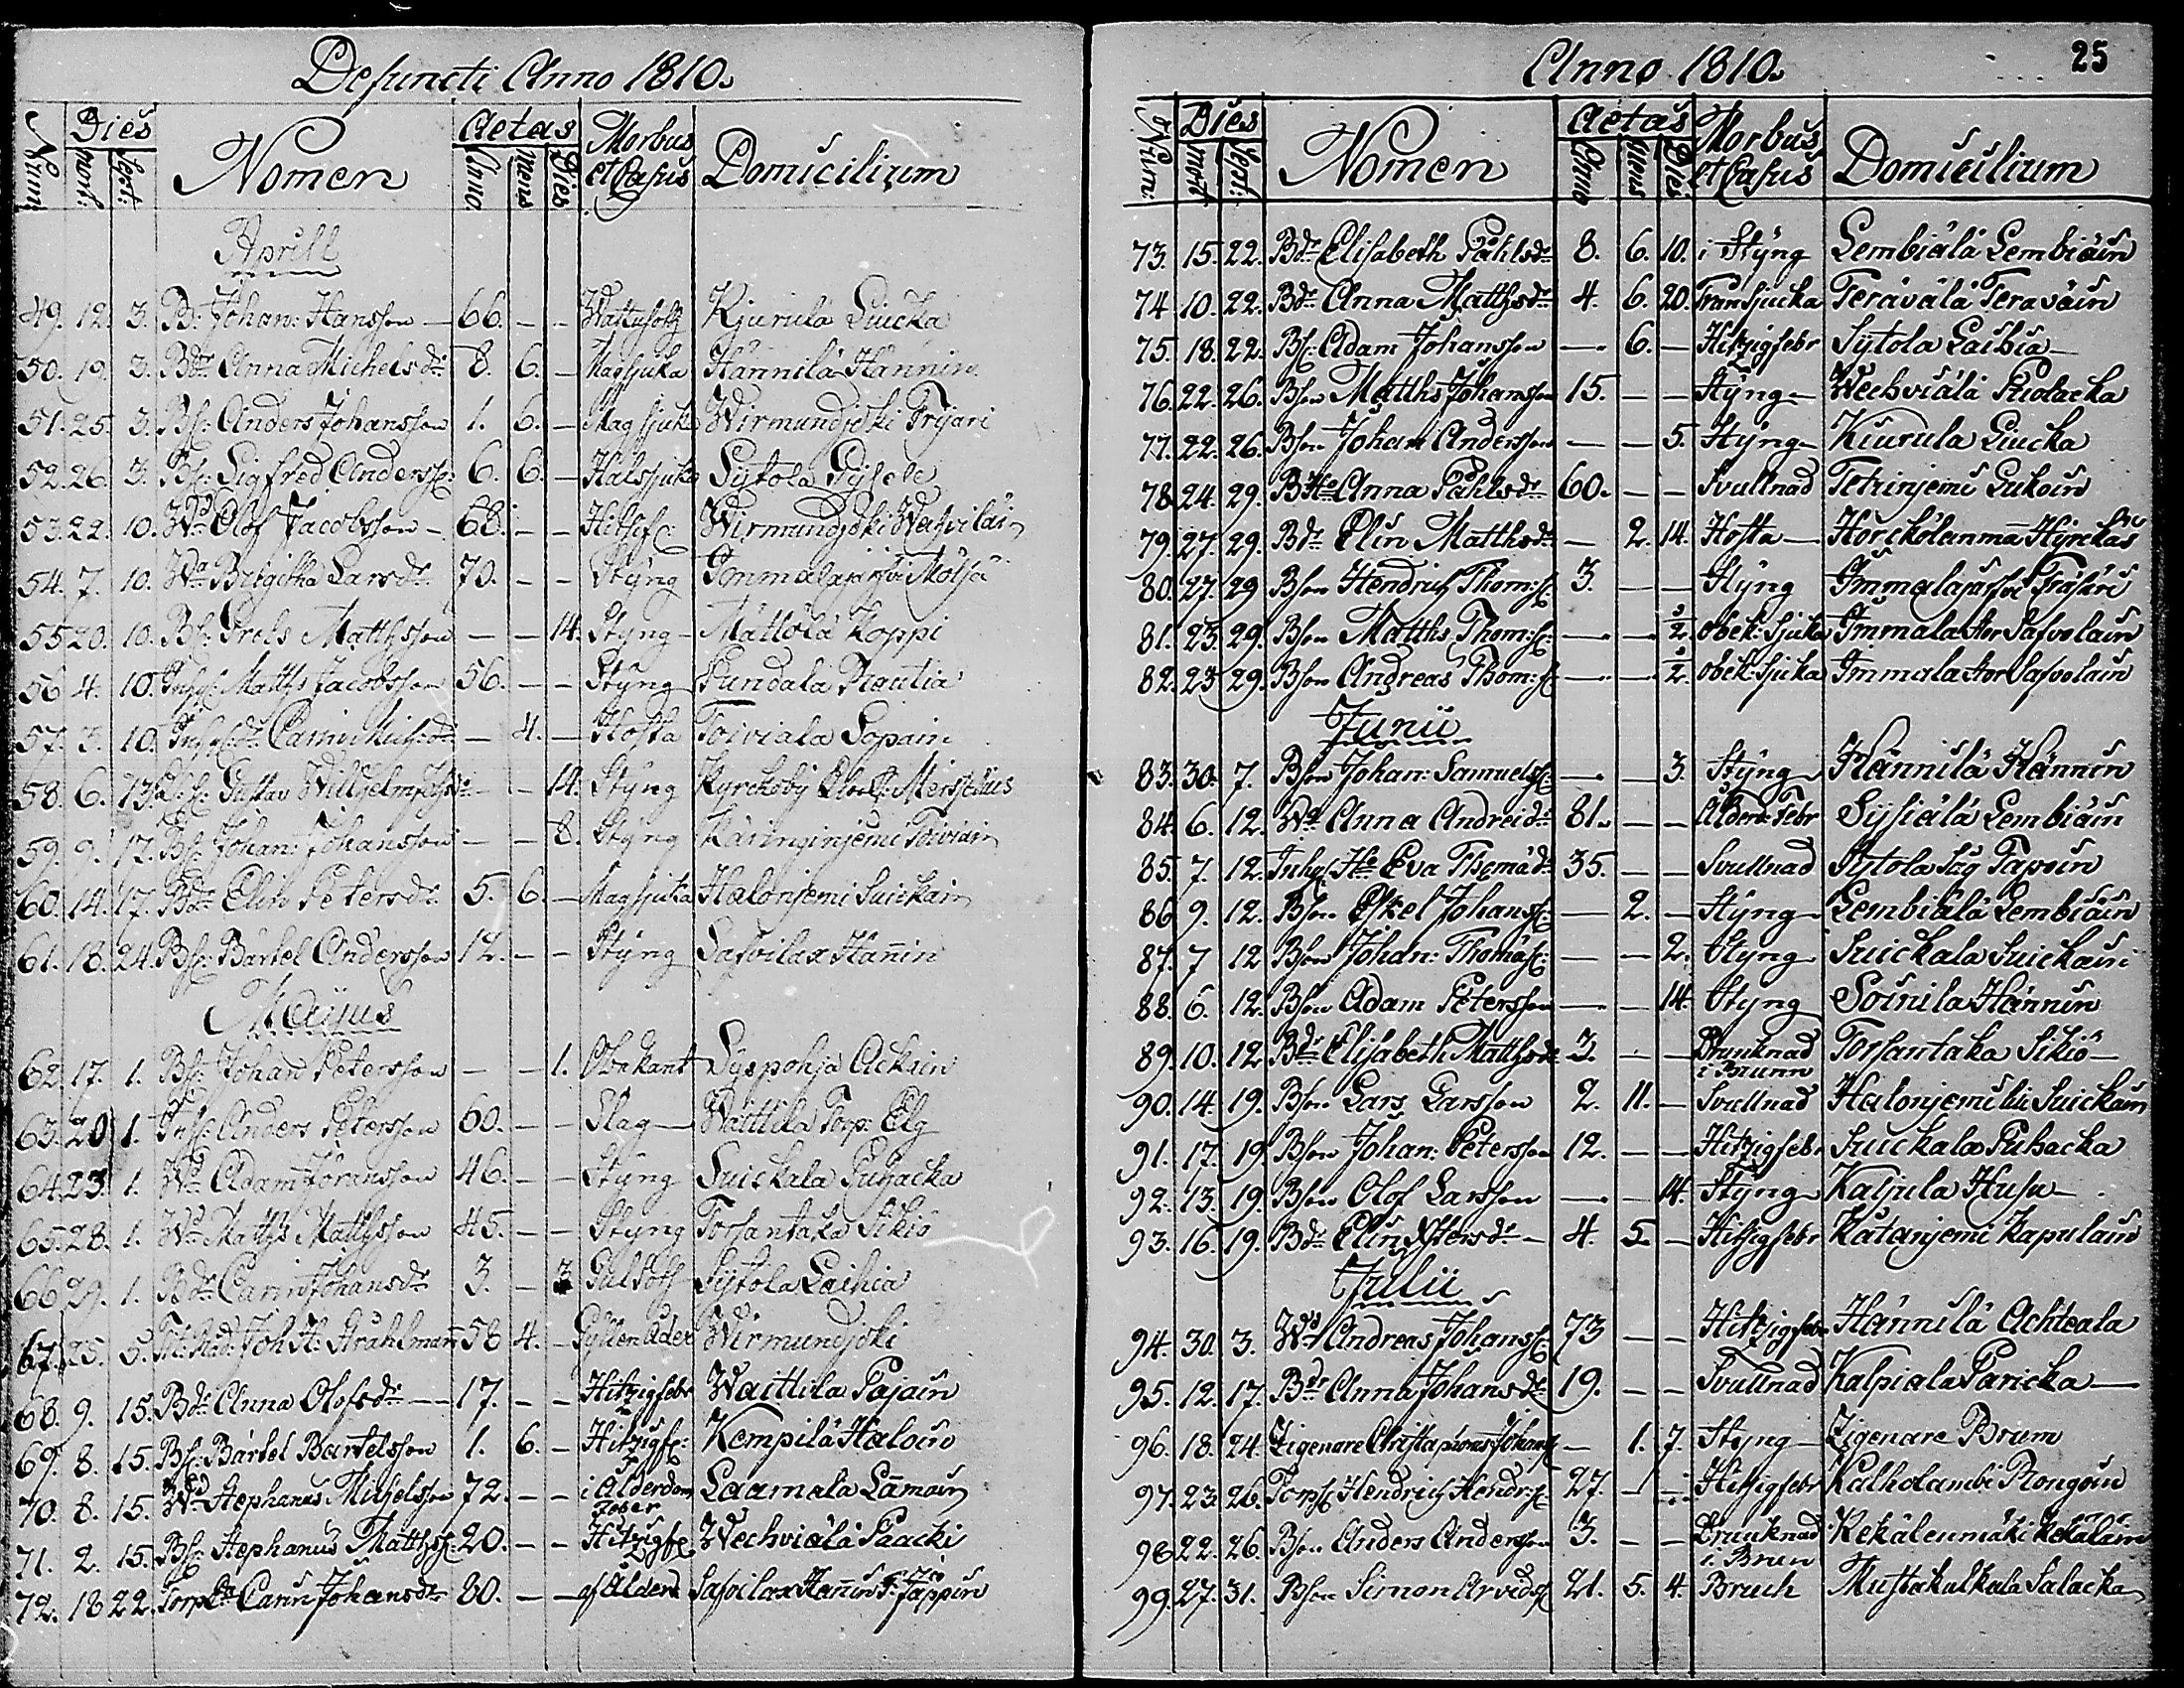 Defuncti Anno 1810.
Num: Dies mort: Sept: Nomen Aetas Anno. Mens Dies Morbus et Casus Domicilium
Aprill
49. 12. 3. B: Johan: Hansson — 66. - - Wattusot Kjurula Liucka
50. 19. 3. Bdr Anna Michelsdr 8. 6. - Magsjuka Hännilä Hännin
51. 25. 3. Bs: Anders Johansson 1. 6. - Magsjuka Wirmundjoki Trijari
52. 26. 3. Bs: Sigfred Anderss: 6. 6. - Halssjuka Sytola
53. 22. 10. Wd Olof Jacobsson - 68. - - Hitsif: Wirmundjoki
54. 7. 10. Wa Birgitha Larsdr 70. - - Styng Immalajärfvi Mölsä
55 20. 10. Bs: Grels Matthsson - - 14. Styng - Mättölä Koppi
56 4. 10. Inhys: Matths Jacobsson 56. - - Styng Pundala Rautia
57. 3. 10. Carin - 4. - Hosta Toiviala Sopain
58. 6. 13. Gustav - - 14. Styng Kyrckoby
59. 9. 17. Bs: Johan: Johansson - - 8. Styng Toiviain
60. 14. 17. Bdr Elin Petersdr 5. 6. - Magsjuka Halonjemi Suickain
61. 18. 24. Bs: Bärtel Andersson 12. - - Styng Safvilax Hanin
Majus
62. 17. 1. Bs: Johan Petersson - - 1. Obekant Syspohja Acksin
63. 20 1. Anders Petersson 60. - - Slag - Wättilä Torp: Elg
64. 23. 1. Wd Adam Jöransson 46. - - Styng Suickala Puhacka
65. 28. 1. Wd Matths Matthsson 45. - - Styng Torsantaka Sikiö
66 29. 1. Bdr Carin Johansdr 3. - 3 Gulsot Sytola Laihia
67. 25. 5. Joh: H: Stråhlman 58 4. - Gyllen Åder Wirmundjoki
68. 9. 15. Bdr Anna Olofsdr — 17. - - Hitzigfebr Waittila Pajain
69. 8. 15. Bs: Bärtel Bartelsson 1. 6. - Hitzigf: Kempilä Haloin
70. 8. 15. Wd Stephanus Michelsson 72. - - i Ålderdom Feber Laamala Lamain
71. 2. 15. Bs: Stephanus Matthss: 20. - - Hitzigf: Wechviälä Paacki
72. 18 22. Torp Ea Carin Johansdr 80. - - af Ålderd Safvilax Hanin Jäppin
Anno 1810.
25
Num: Dies mort: Sept: Nomen Aetas Anno Mens Dies Morbus et Casus Domicilium
73. 15. 22. Bdr Elisabeth Påhlsdr 8. 6. 10. i Styng Lembiälä Lembiäin
74 10. 22. Bdr Anna Matthsdr 4. 6. 20. Transjucka Terävälä Teraväin
75. 18. 22. Bs: Adam Johansson — 6. - Hitzigfebr Sytola Laihia —
76. 22. 26. Bson Matths Johansson 15. - - Styng - Wechviälä
77. 22. 26. Bson Johan Andersson — - 5. Styng - Kiurula Liucka
78 24. 29. B Ho Anna Påhlsdr 60. - - Svullnad Tetrinjemi Lukoin
79. 27. 29. Bdr Elin Matthsdr — 2. 14. Hosta — Hyrckäs
80. 27. 29 Bson Hendrich Thom:s: 3. - - Styng Immalajärfvi Träskri
81. 23. 29. Bson Matths Thom:s: — - 1/2. obek: Sjuka Immala Tor Safvolain
82. 23 29. Bson Andreas Thom:s: — - 1/2. obek: Sjuka Immala Tor Safvolain
Junii
83. 30. 7. Bson Johan: Samuelss: — - 3. Styng Hännilä Hännin
84. 6. 12. Wa Anna Andreidr 81. - - Ålderd: Febr Syysiälä Lembiäin
85. 7. 12. Inhys Ho Eva Thomædr 35. - - Svullnad Sytola Såg Tapoin
86 9. 12. Bson Eskel Johanss: — 2. - Styng Lembiälä Lembiäin
87. 7 12 Bson Johan: Thomæs: — - 2. Styng Suickala Suickain
88. 6. 12. Bson Adam Petersson — - 14. Styng Soinila Hännin
89. 10. 12 Bdr Elisabeth Matthsdr 3. - - Drunknad i Brunn Torsantaka Sikiö —
90. 14. 19. Bson Lars Larsson 2. 11. - Svullnad Halonjemi Suickain
91. 17. 19. Bson Johan: Petersson 12. - - Hitzigfebr Suickala Puhacka
92. 13. 19. Bson Olof Larsson — - 14. Styng Kaljula Husu —
93. 16. 19. Bdr Elin Petersdr — 4. 5 - Hitsigfebr Kätanjemi Kapulain
Julii
94. 30. 3. Wd Andreas Johanss: 73 - - Hitzigfebr Hännilä Achteala
95. 12. 17. Bdr Anna Johansdr 19. - - Svullnad Kalpiala Paricka —
96. 18. 24. Zigenare — 1. 7. Styng — Zigenare Brum
97. 23. 26. Torps: Hendrich Hendr:s: 27. - - Hitsigfebr Kalholambi Rongoin
98 22. 26. Bson Anders Andersson 3. - - Drunknad i Brun Kekälenmäki Kekäläin
99. 27. 31. Bson Simon Arvidss: 21. 5. 4. Bruch Mustakalkala Salacka